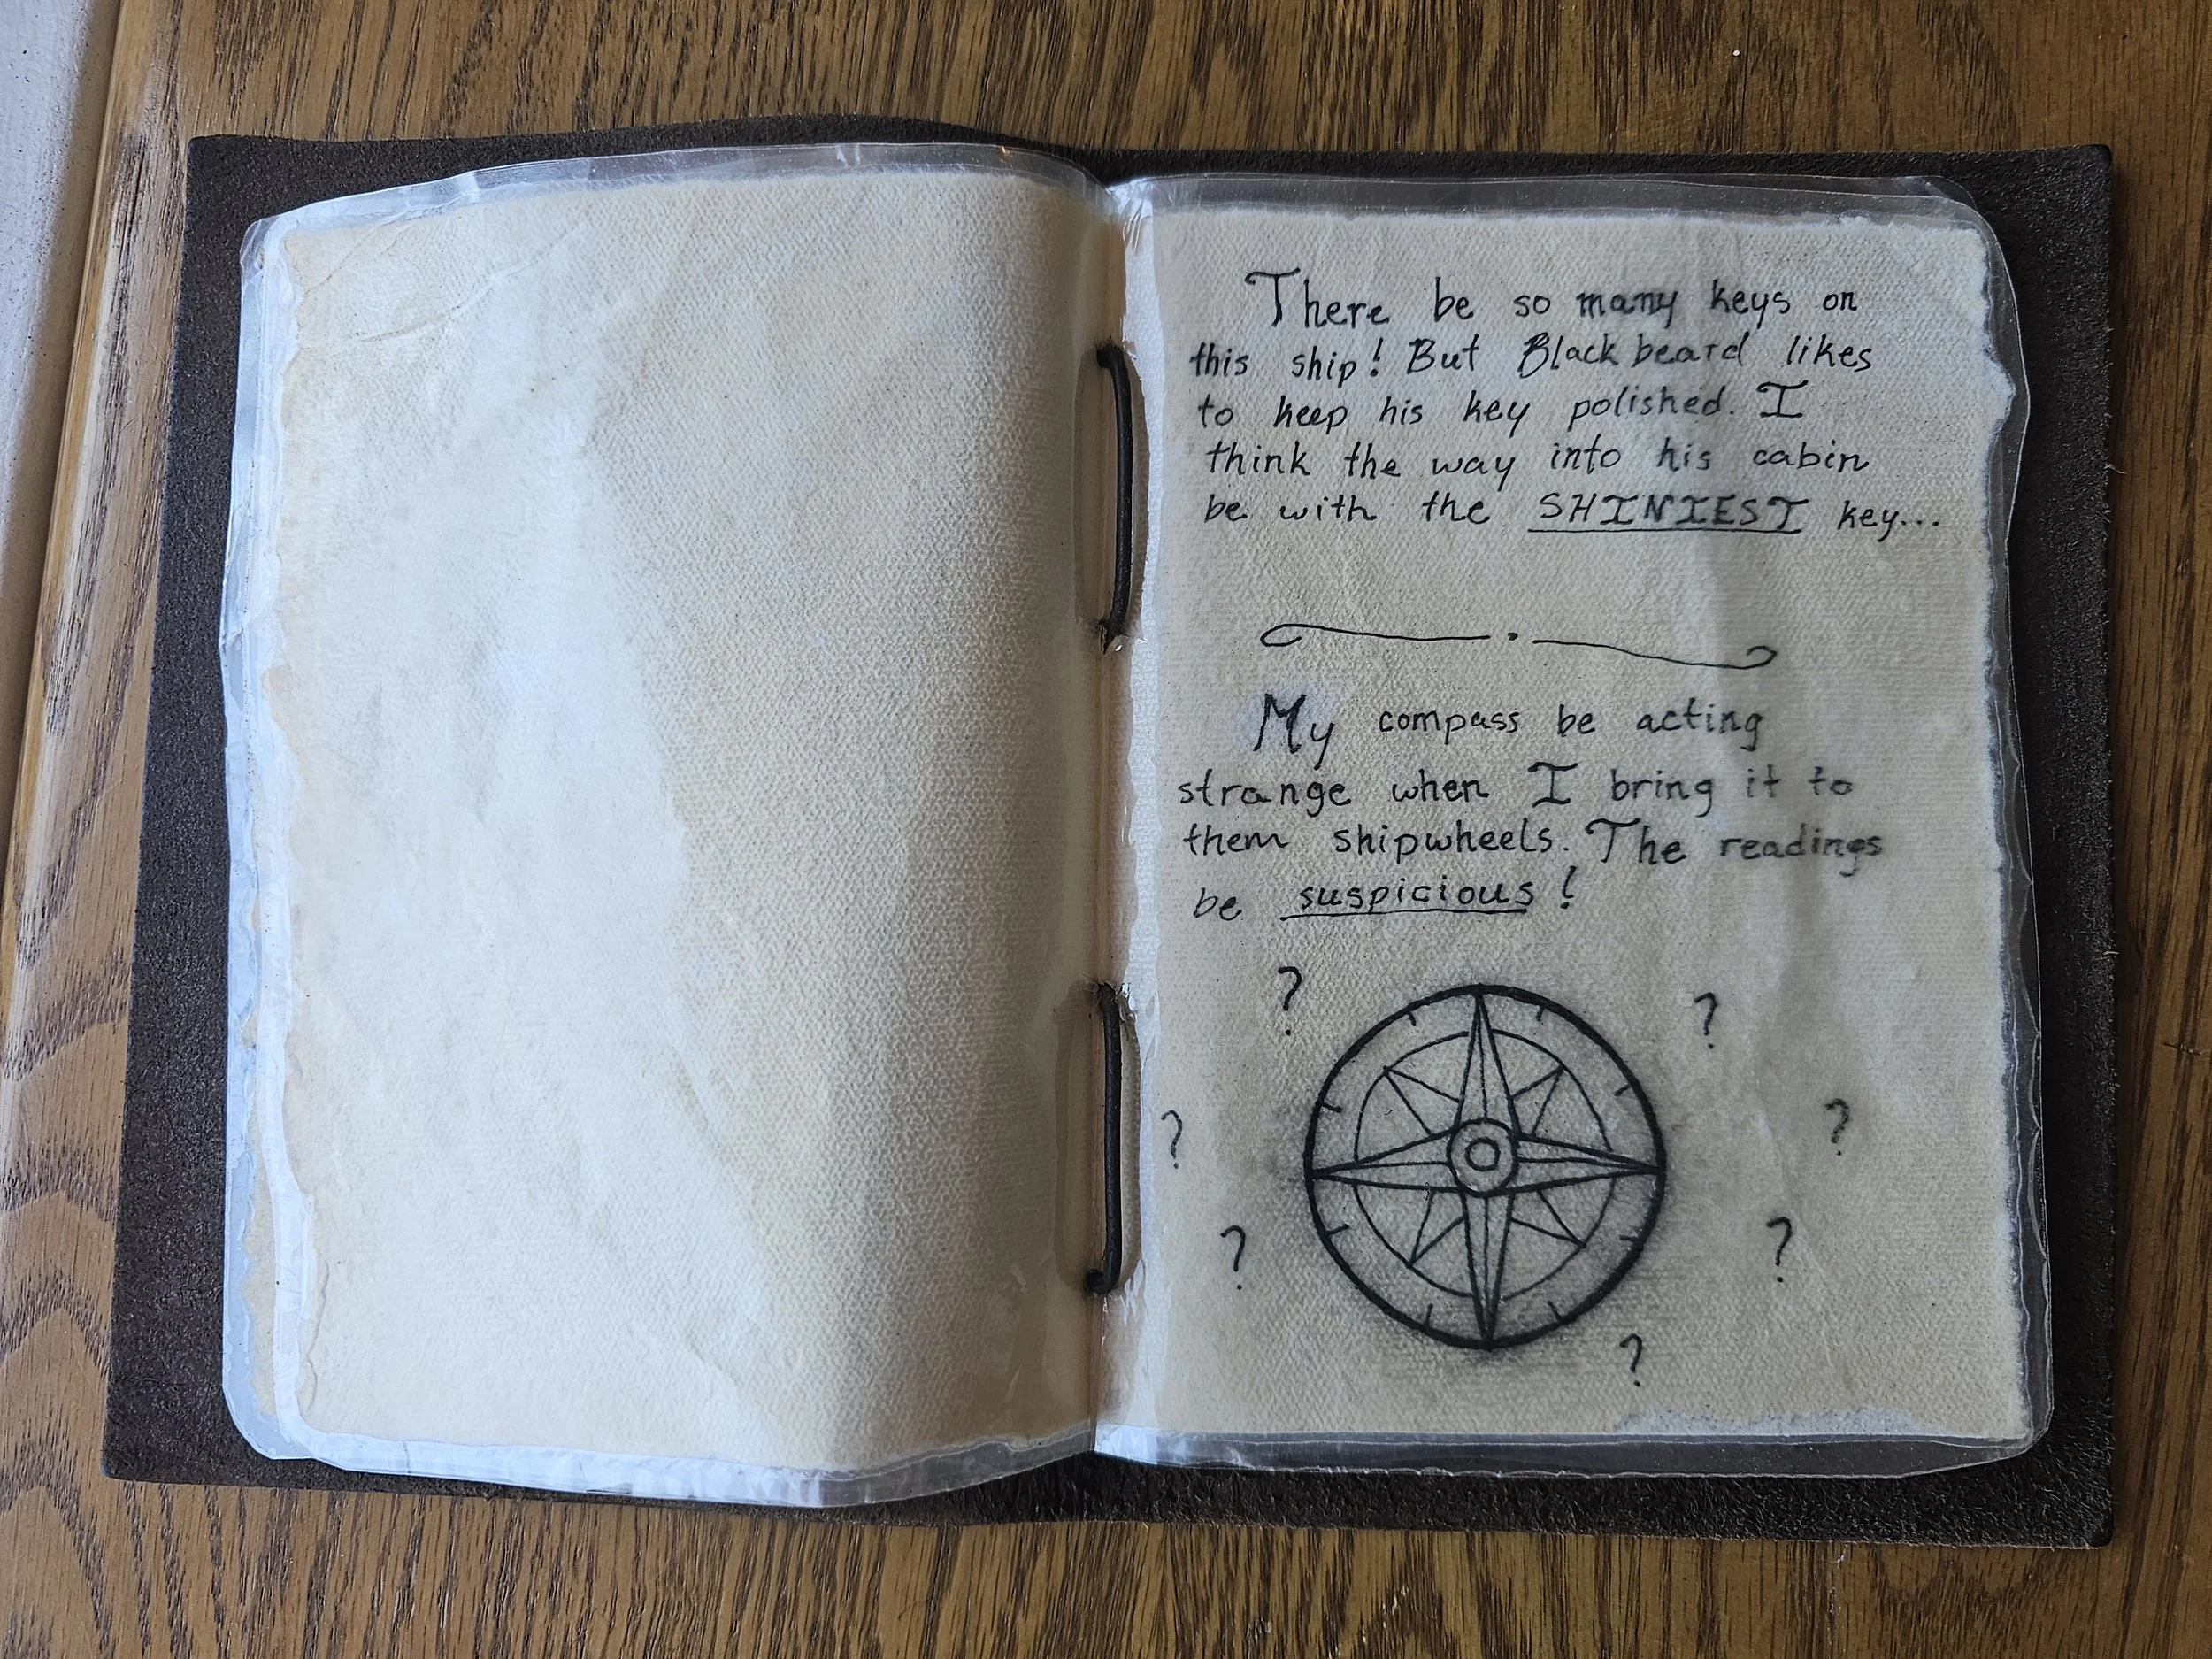 There be so many keys on
this ship! But Blackbeard likes
to keep his key polished. I
think the way into his cabin
be with the SHINIEST key...
My compass be acting
strange when I bring it to
them shipwheels. The readings
be suspicious!
? ?
? ?
? ?
?